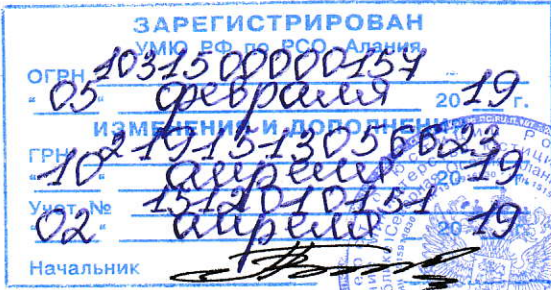 ЗАРЕГИСТРИРОВАН
УМЮ РФ по РСО Алания
ОГРН 1031500000157
"05" февраля 2019 г.
ИЗМЕНЕНИЯ И ДОПОЛНЕНИЯ
ГРН 2191513056623
"10" апреля 2019
Учет. № 1512010151
"02" апреля 2019
Начальник